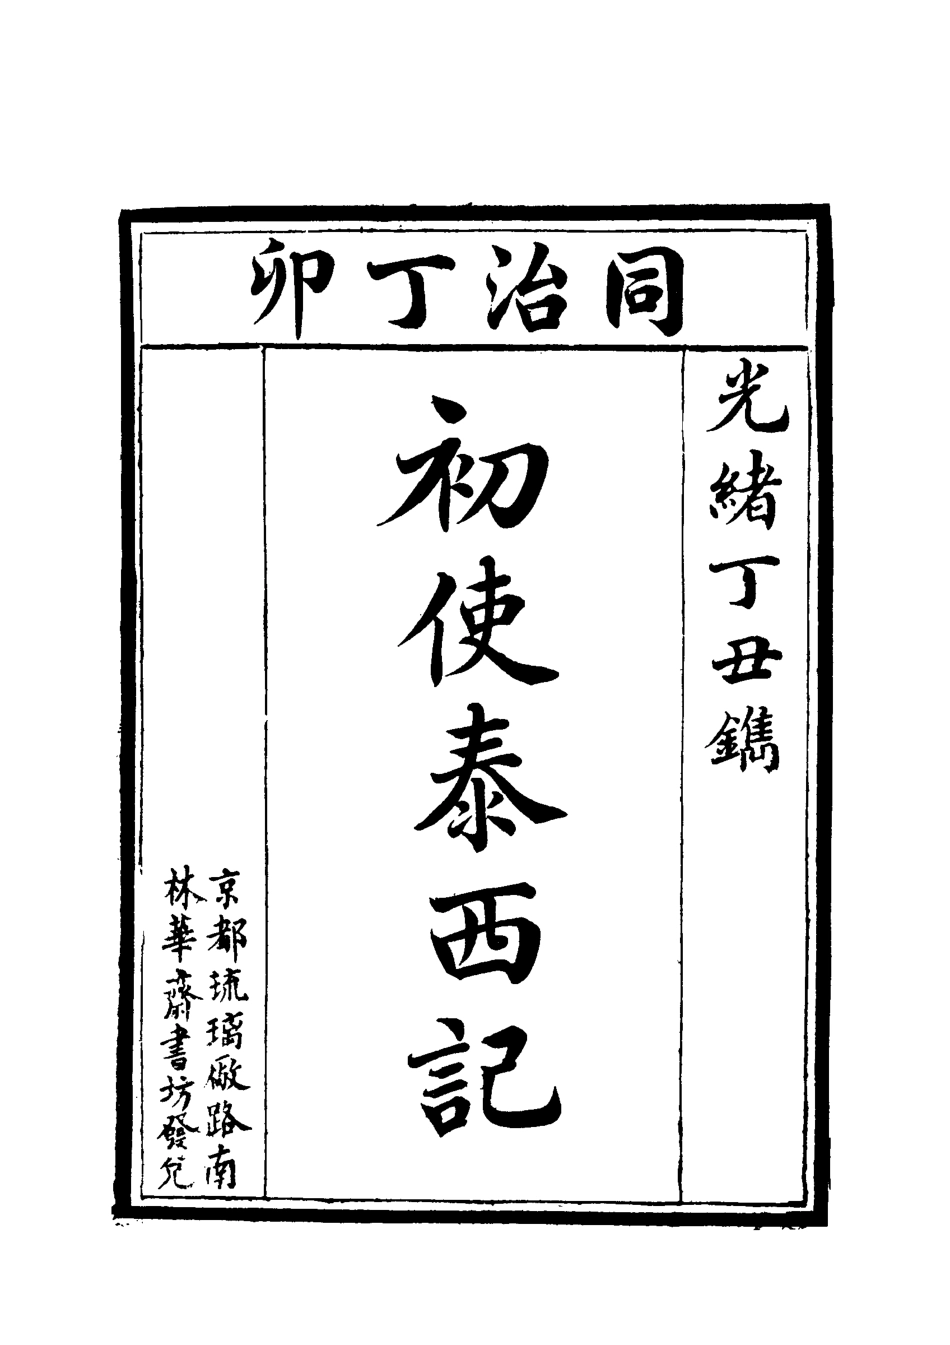 同治丁卯
光緒丁丑鐫
初使泰西記
京都琉璃厰路南
林華齋書坊發兌